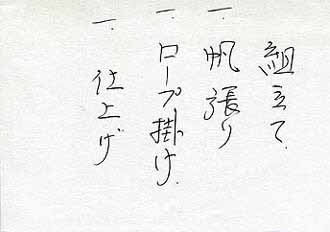 組立て
一. 帆張り
一. ロープ掛け.
一. 仕上げ